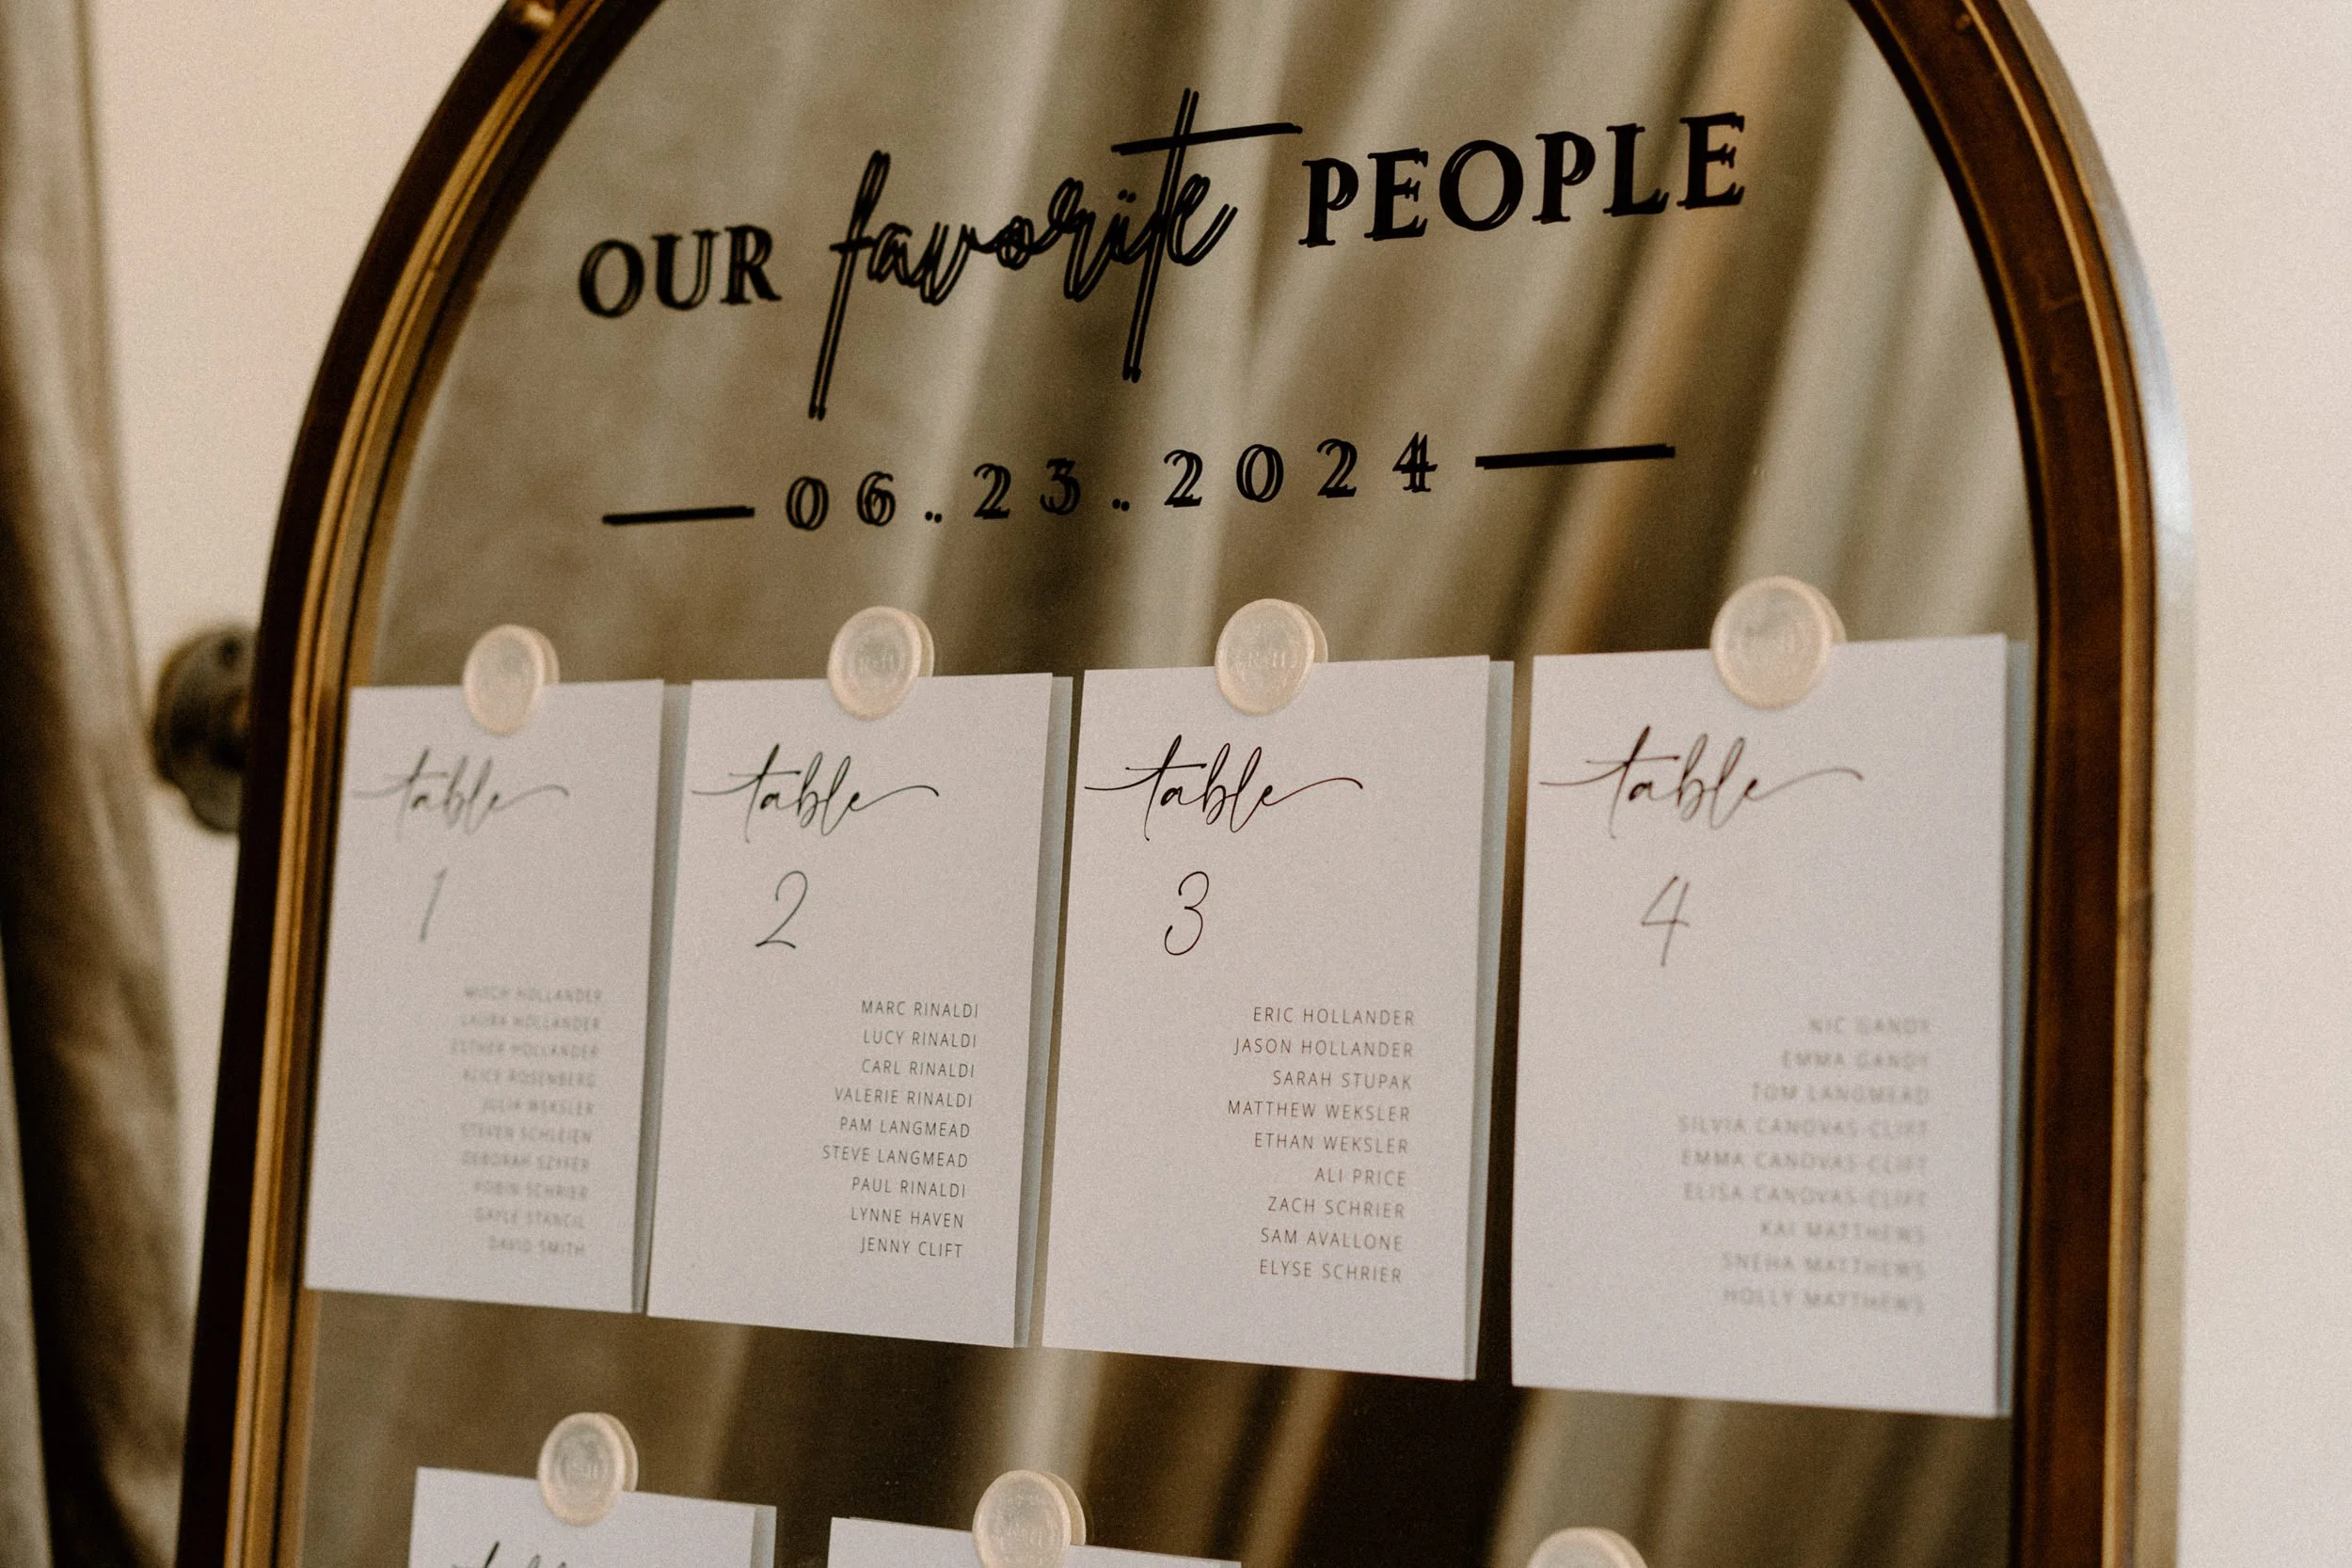 OUR favorite PEOPLE
06.23.2024
table
1
LAURA HOLLANDER
ESTHER HOLLANDER
ALICE ROSENBERG
JULIA WEKSLER
STEVEN SCHLEIEN
DEBORAH
ROBIN SCHRIER
GAYLE STANCIL
DAVID SMITH
table
2
MARC RINALDI
LUCY RINALDI
CARL RINALDI
VALERIE RINALDI
PAM LANGMEAD
STEVE LANGMEAD
PAUL RINALDI
LYNNE HAVEN
JENNY CLIFT
table
3
ERIC HOLLANDER
JASON HOLLANDER
SARAH STUPAK
MATTHEW WEKSLER
ETHAN WEKSLER
ALI PRICE
ZACH SCHRIER
SAM AVALLONE
ELYSE SCHRIER
table
4
NIC GANDY
EMMA GANDY
TOM LANGMEAD
SILVIA CANOVAS-CLIFT
EMMA CANOVAS-CLIFT
ELISA CANOVAS-CLIFT
KAI MATTHEWS
SNEHA MATTHEWS
HOLLY MATTHEWS